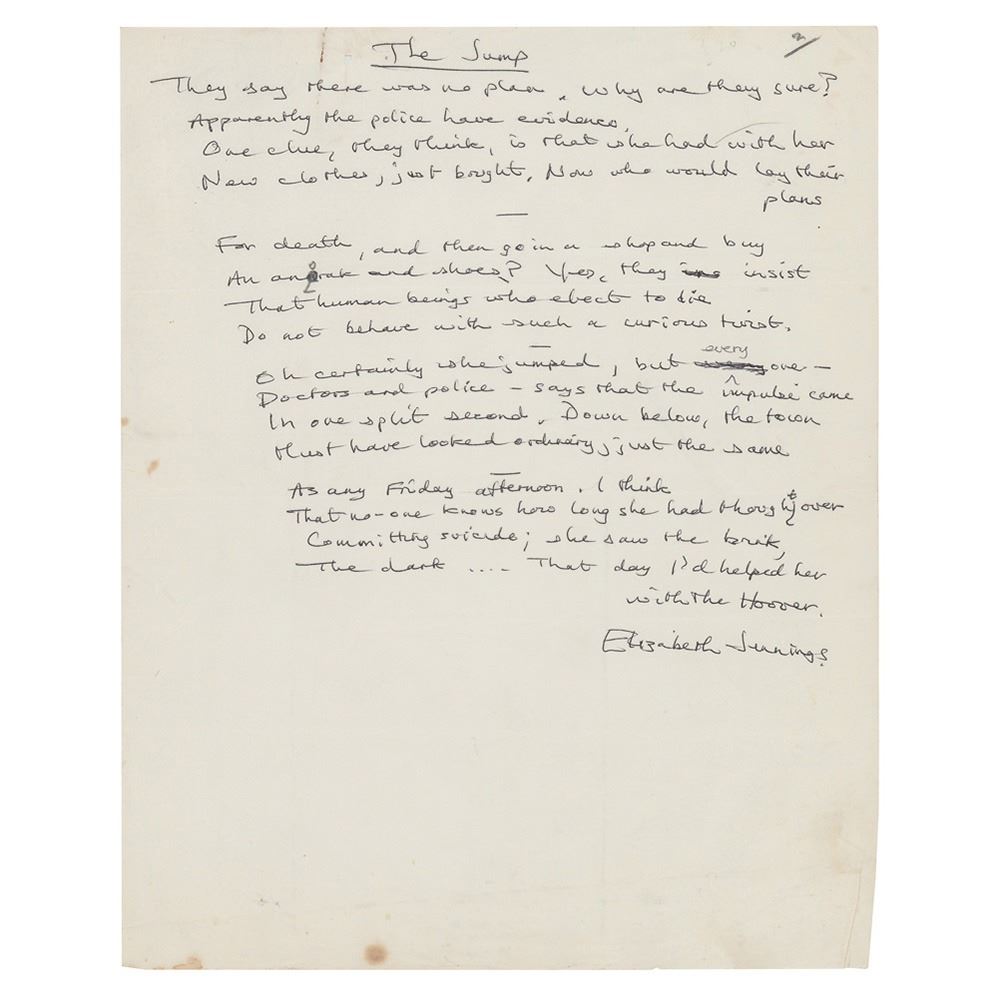 2/
The Jump
They say there was no plan. Why are they sure?
Apparently the police have evidence.
One clue, they think, is that she had with her
New clothes, just bought. Now who would lay their
plans
For death, and then go in a shop and buy
An anorak and shoes? Yes, they insist
That human beings who elect to die
Do not behave with such a curious twist.
Oh certainly she jumped, but everyone –
Doctors and police – says that the impulse came
In one split second. Down below, the town
Must have looked ordinary, just the same
As any Friday afternoon. I think
That no-one knows how long she had thought over
Committing suicide; she saw the brink,
The dark .... That day I'd helped her
with the Hoover.
Elizabeth Jennings.